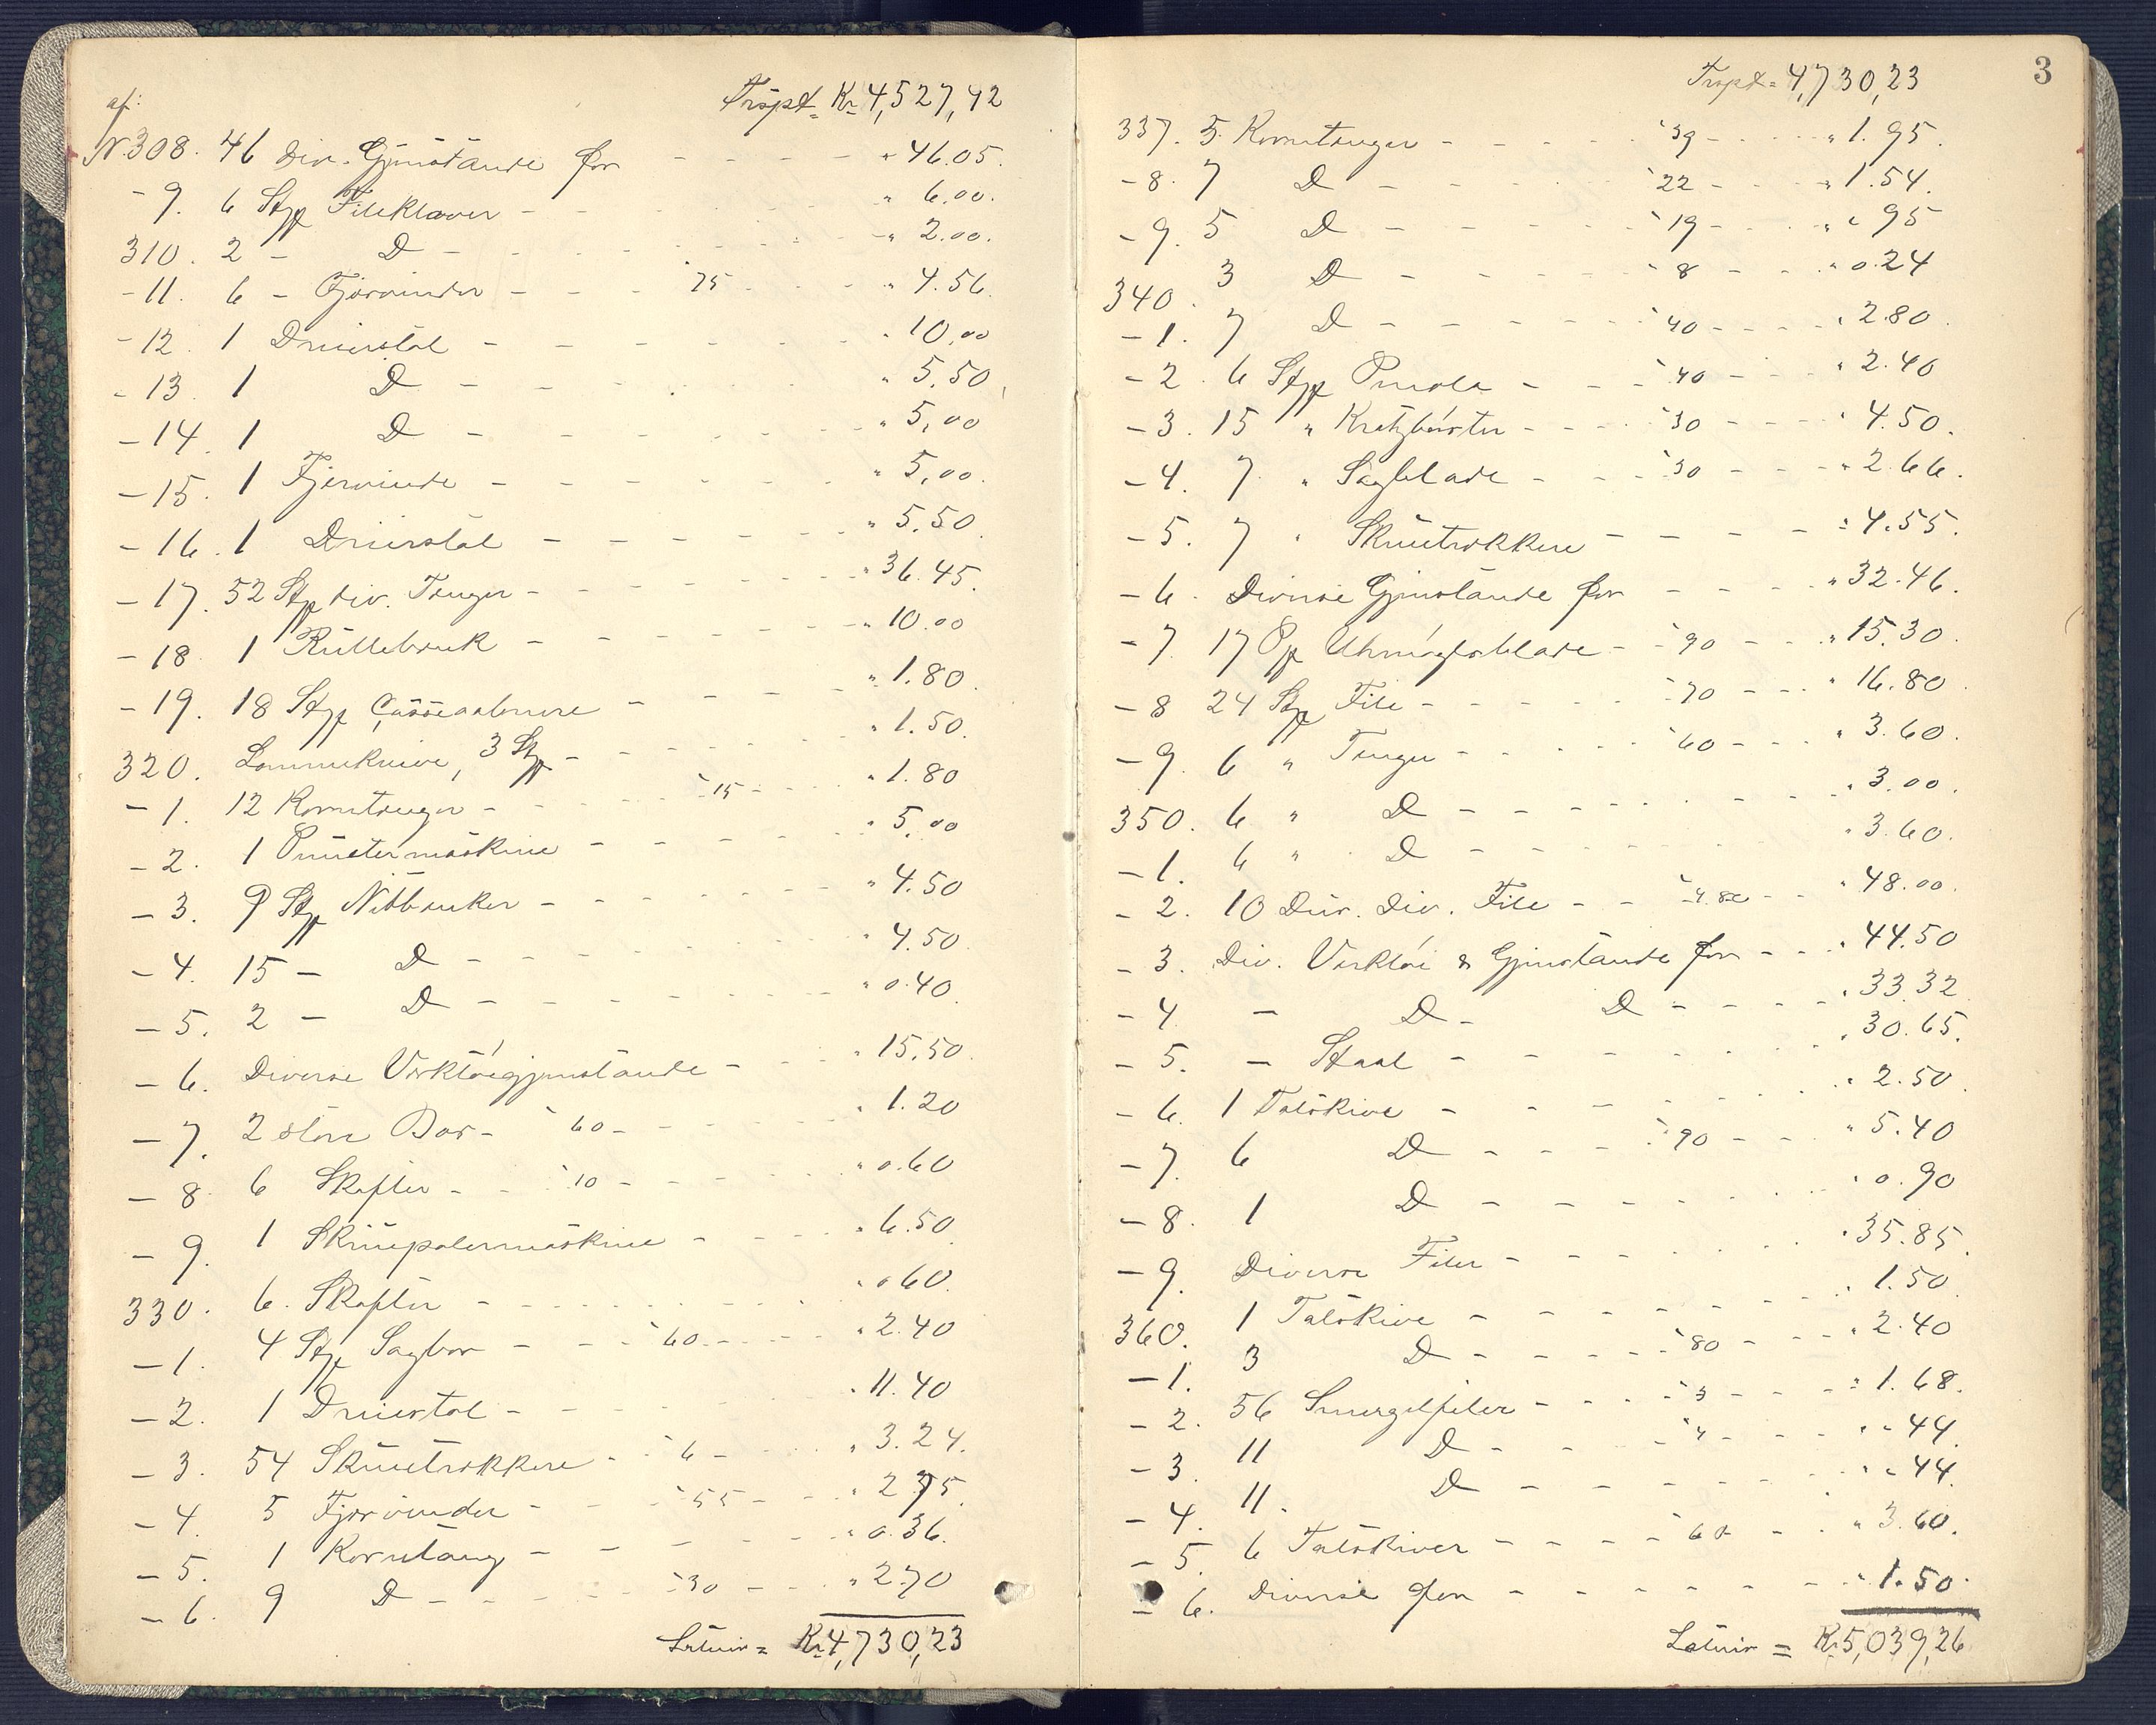 af: Trspt = Kr 4,527,42
N. 308. 46 div. Gjenstande for - - - " 46.05.
- 9. 6 Stp Fileklover - - - " 6.00.
310. 2 - D - - - " 2.00.
- 11. 6 - Fjervinder - - - 75 - - " 4.56.
- 12. 1 Dreierstol - - - " 10,00
- 13. 1 D - - - " 5.50
- 14. 1 D - - - " 5,00
- 15. 1 Fjervinde - - - " 5,00.
- 16. 1 Dreierstol - - - " 5.50.
- 17. 52 Stp div. Tenger - - - " 36.45.
- 18. 1 Rullebenk - - - " 10.00
- 19. 18 Stp - - - " 1.80.
320. Lommeknive, 3 Stp - - - " 1.50.
- 1. 12 Korntenger - - - 15 - - " 1.80
- 2. 1 maskine - - - " 5.00
- 3. 9 Stp Nitbenker - - - " 4.50
- 4. 15 - D - - - " 4.50
- 5. 2 - D - - - " 0.40.
- 6. Diverse Verktøigjenstande - - - " 15.50.
- 7. 2 store Bor - 60 - - - " 1.20
- 8. 6 Skafter - - 10 - - - " 0.60
- 9. 1 Skruepolermaskine - - - " 6.50.
330. 6. Skafter - - - " 0 60.
- 1. 4 Stp Sagbor - - - 60 - - " 2.40
- 2. 1 Dreierstol - - - " 11.40
- 3. 54 Skruetrekkere - 6 - - " 3.24.
- 4. 5 Fjervinder - - 55 - - " 2.75.
- 5. 1 Korntang - - - " 0.36.
- 6. 9 D - - - 30 - - " 2.70
Latuir = Kr 4,730,23
3
Trspt = 4,730,23
337. 5 Korntenger - - - 39 - - - " 1.95.
- 8. 7 D - - - 22 - - - " 1.54.
- 9. 5 D - - - 19 - - - " " 95
340. 3 D - - - 8 - - - " 0.24
- 1. 7 D - - - 40 - - - " 2.80.
- 2. 6 Stp - - - 40 - - - " 2.40
- 3. 15 " Kratzbørster - - - 30 - - - " 4.50.
- 4. 7 " Sagblade - - - 30 - - - " 2.66.
- 5. 7 " Skruetrekkere - - - " 4.55.
- 6. Diverse Gjenstande for - - - " 32.46.
- 7. 17 Pp - - 90 - - - " 15.30.
- 8 24 Stp File - - - 70 - - - " 16.80.
- 9. 6 " Tenger - - - 60 - - - " 3.60.
350. 6 " D - - - " 3.00.
- 1. 6 " D - - - " 3.60.
- 2. 10 Dus. div. File - - 4.80 - - " 48.00.
- 3. Div. Verktøi & Gjenstande for - - " 44.50
- 4 - D - D - - - " 33.32
- 5. - Staal - - - " 30.65.
- 6. 1 Talskive - - - " 2.50.
- 7. 6 D - - - 90 - - " 5.40
- 8. 1 D - - - " 0.90
- 9. Diverse Filer - - - " 35.85.
360. 1 Talskive - - - " 1.50.
- 1. 3 D - - - 80 - - - " 2.40
- 2. 56 Smergelfiler - - - 3 - - - " 1.68.
- 3. 11 D - - - 4 - - - " " 44.
- 4. 11. D - - - " " 44.
- 5. 6 Talskiver - - - 60 - - " 3.60.
- 6. Diverse for - - - " 1.50.
Latuir = Kr 5,039,26